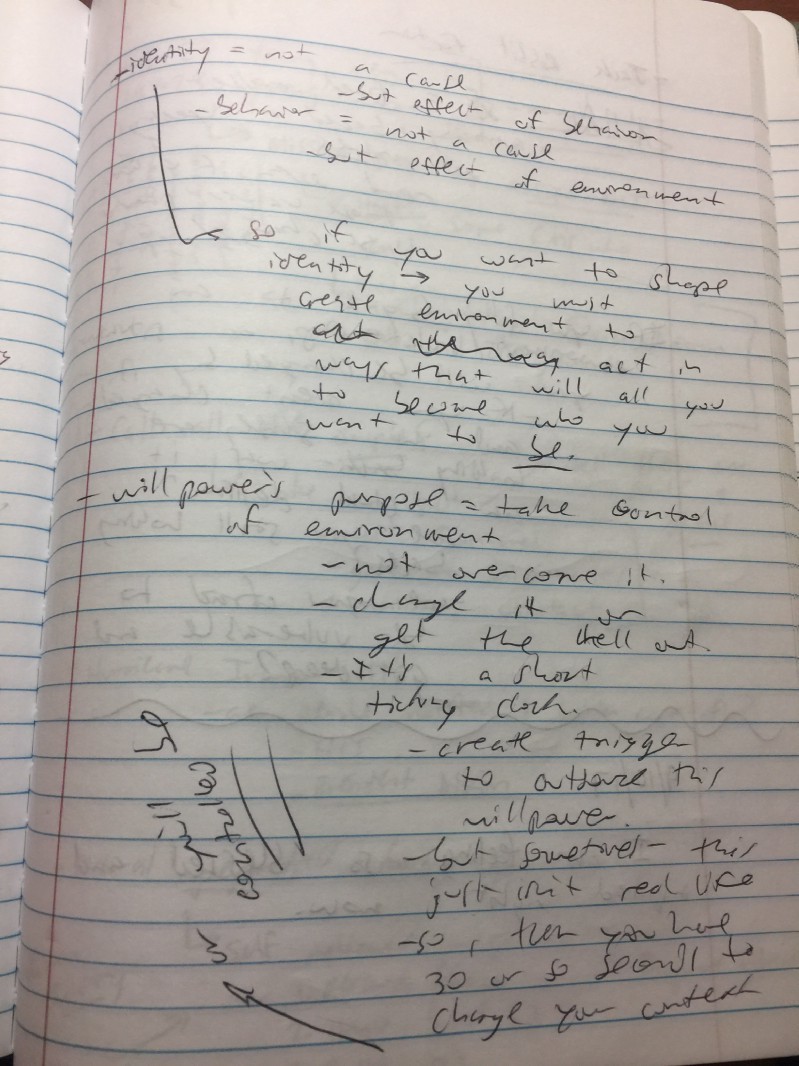 - identity = not a cause
- but effect of behavior
- Behavior = not a cause
- but effect of environment
so if you want to shape
identity → you must
create environment to
act in
ways that will all you
to become who you
want to be.
- willpower's purpose = take control
of environment
- not overcome it.
- change it or
get the hell out.
- It's a short
ticking clock.
- create trigger
to outsource this
willpower.
- but sometimes - this
just isn't real life
- so, then you have
30 or so seconds to
change your context